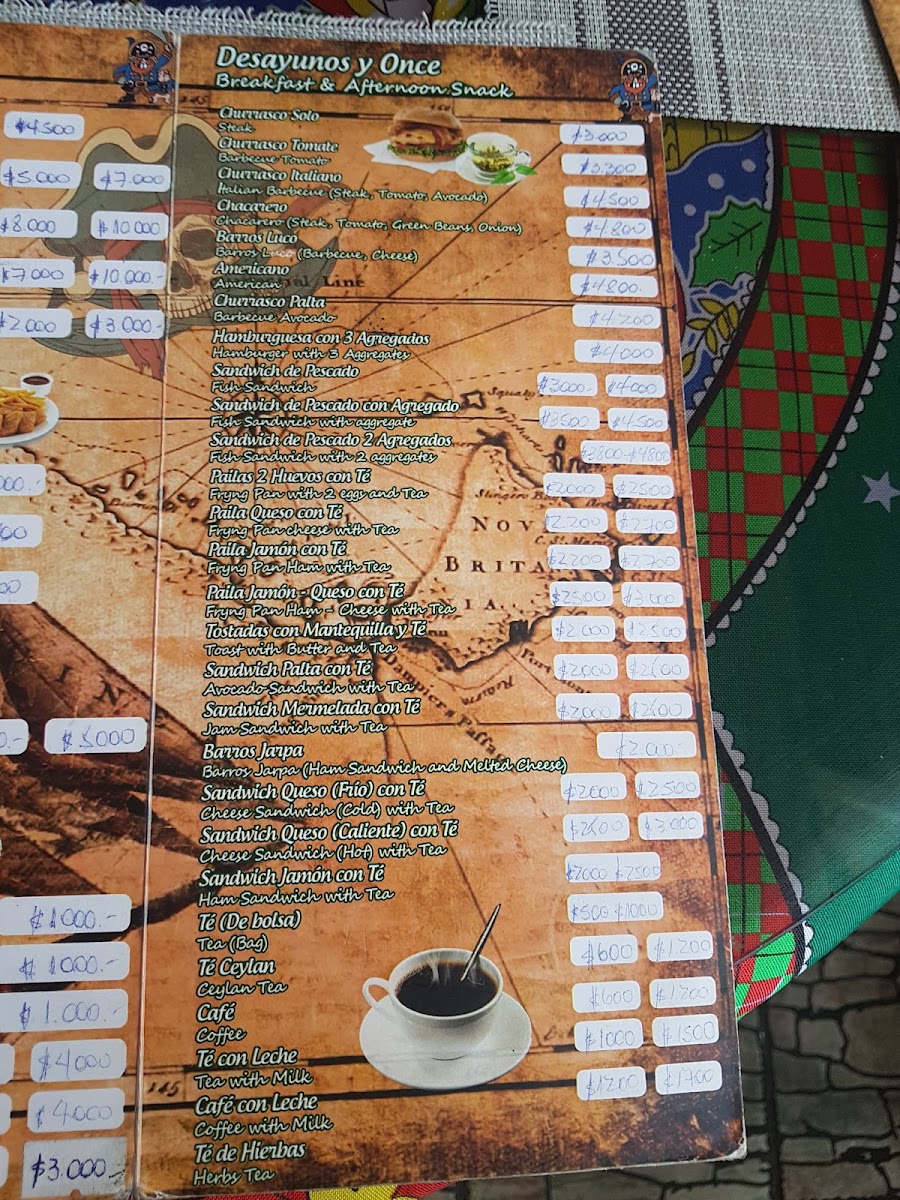 $4500
$5.000 $7.000
$8.000 $10.000
$7.000 $10.000.-
$2.000 $3.000.-
$5000
$1000.-
$1000.-
$1.000.-
$4000
$4.000
$3.000.-
Desayunos y Once
Breakfast & Afternoon Snack
Churrasco Solo $3.000
Steak
Churrasco Tomate $3.300
Barbecue Tomato
Churrasco Italiano $4500
Italian Barbecue (Steak, Tomato, Avocado)
Chacarero $4.800
Chacarero (Steak, Tomato, Green Beans, Onion)
Barros Luco $3.500
Barros Luco (Barbecue, Cheese)
Americano $4800.
American
Churrasco Palta $4.200
Barbecue Avocado
Hamburguesa con 3 Agregados $4000
Hamburger with 3 Aggregates
Sandwich de Pescado $3000- $4000
Fish Sandwich
Sandwich de Pescado con Agregado $3500 $4.500
Fish Sandwich with aggregate
Sandwich de Pescado 2 Agregados $3800-$4800
Fish Sandwich with 2 aggregates
Pailas 2 Huevos con Té $2000 $2500
Fryng Pan with 2 eggs and Tea
Paila Queso con Té $2.200 $2700
Fryng Pan cheese with Tea
Paila Jamón con Té $2200 $2.700
Fryng Pan Ham with Tea
Paila Jamón - Queso con Té $2500 $3.000
Fryng Pan Ham - Cheese with Tea
Tostadas con Mantequilla y Té $2.000 $2.500
Toast with Butter and Tea
Sandwich Palta con Té $2000
Avocado Sandwich with Tea
Sandwich Mermelada con Té $2,000
Jam Sandwich with Tea
Barros Jarpa $2.000.-
Barros Jarpa (Ham Sandwich and Melted Cheese)
Sandwich Queso (Frío) con Té $2000 $2500
Cheese Sandwich (Cold) with Tea
Sandwich Queso (Caliente) con Té $3.000
Cheese Sandwich (Hot) with Tea
Sandwich Jamón con Té $2000 $2500
Ham Sandwich with Tea
Té (De bolsa) $500 $1000
Tea (Bag)
Té Ceylan $600 $1.200
Ceylan Tea
Café $600 $1200
Coffee
Té con Leche $1000 $1500
Tea with Milk
Café con Leche $1200 $1700
Coffee with Milk
Té de Hierbas
Herbs Tea
NOV
BRITA
IA
145